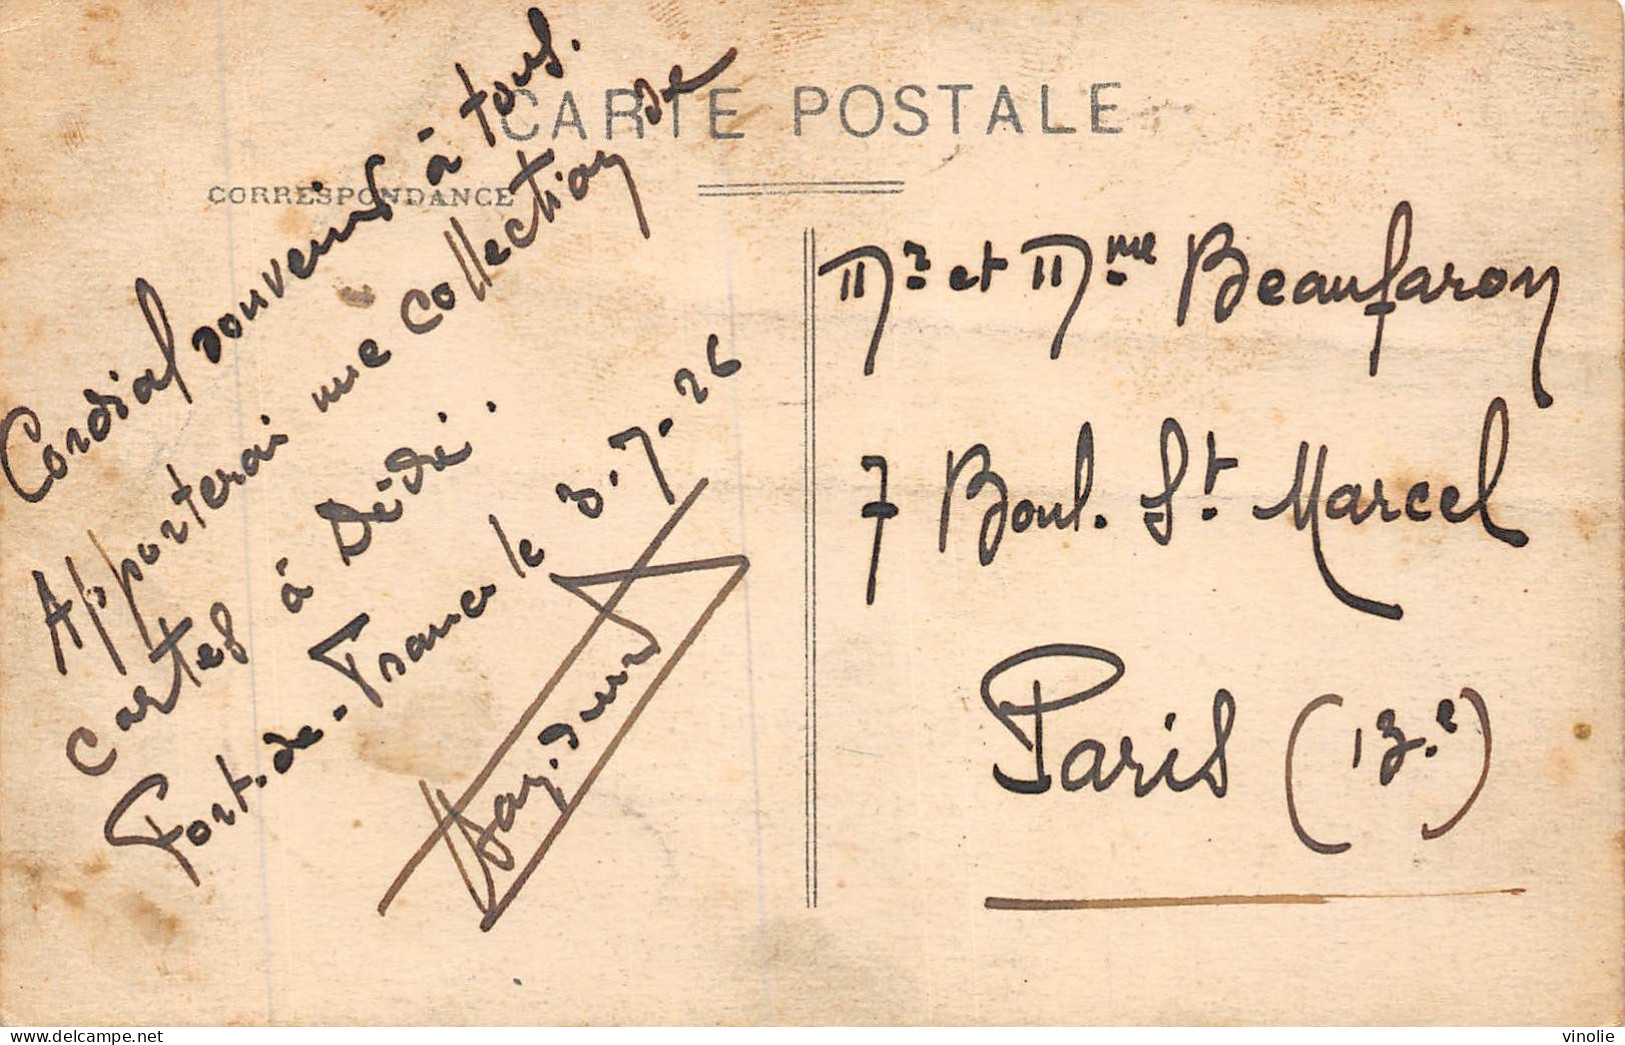 CARTE POSTALE
CORRESPONDANCE
Cordial souvenir à tous.
Apporterai une collection de
cartes à Dédé.
Fort-de-France le 3.7.26
Mr. et Mme. Beaufaron
7 Boul. St. Marcel
Paris (13.e)
vinolie